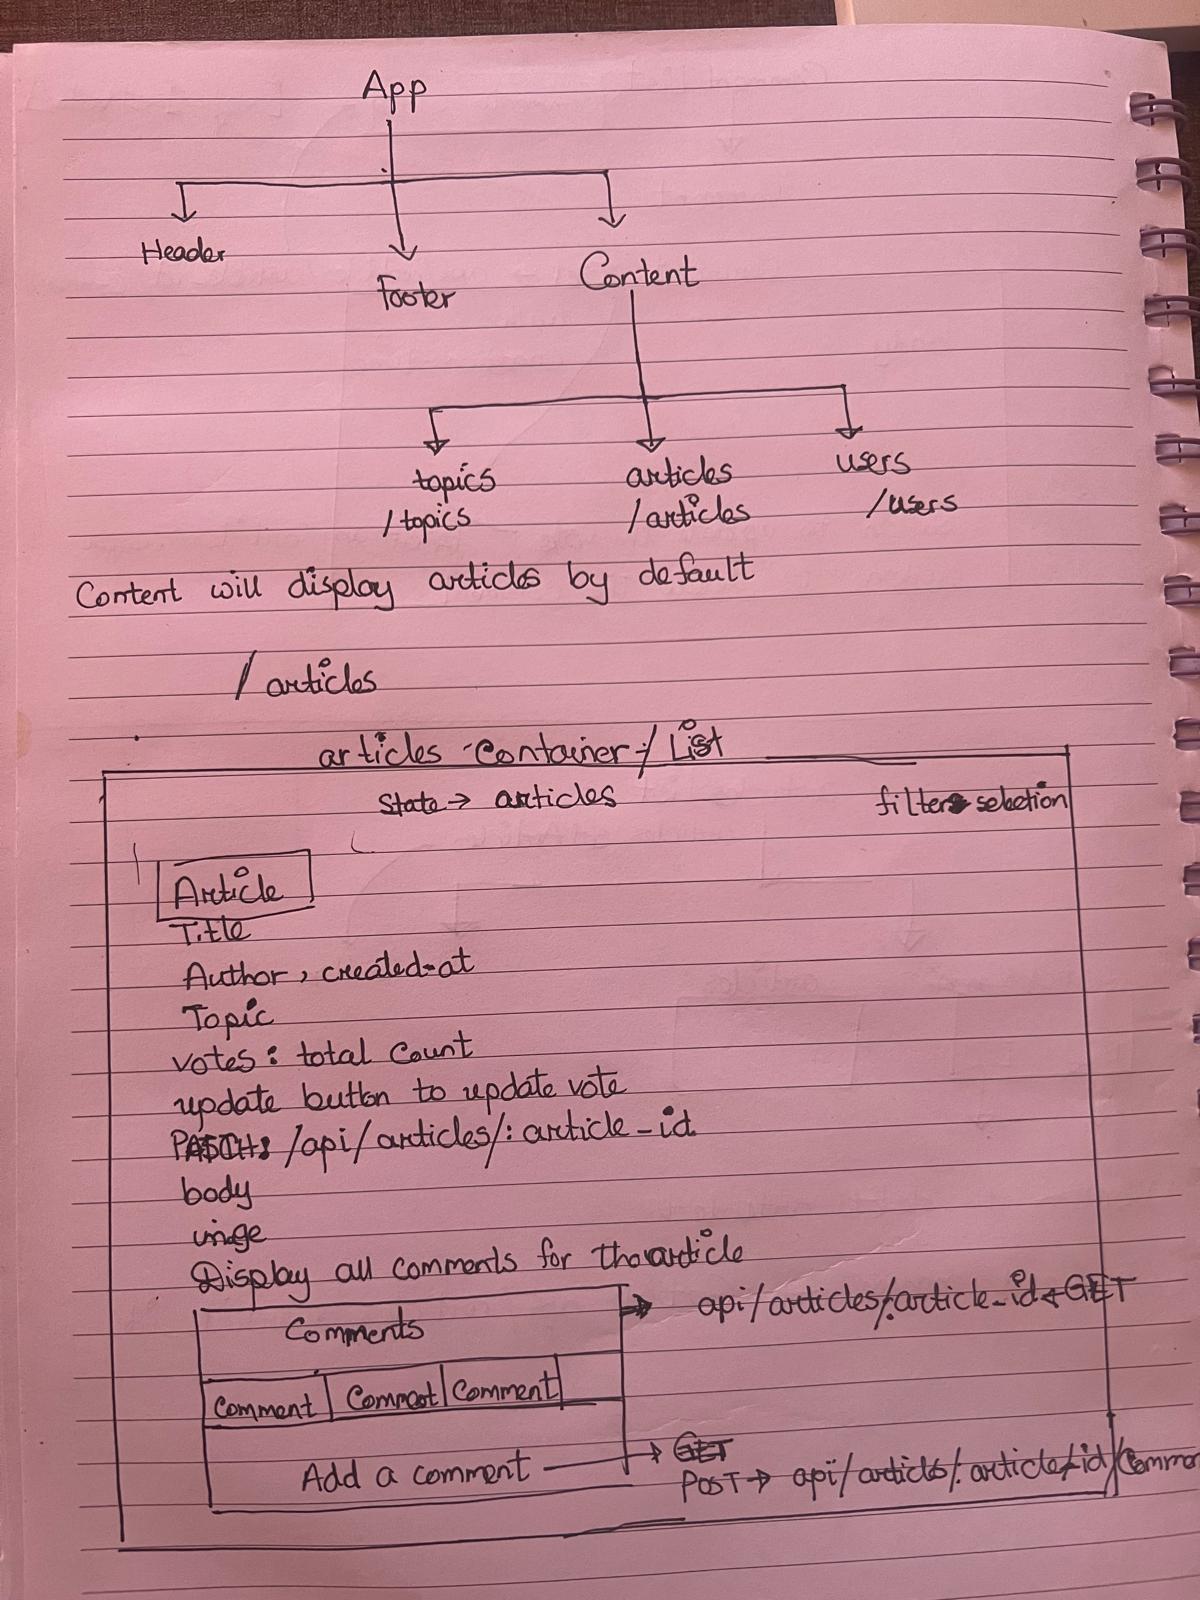 App
Header
Footer
Content
topics
/topics
articles
/articles
users
/users
Content will display articles by default
/articles
articles-Container-/List
State→ articles
filters selection
Article
Title
Author, created-at
Topic
votes: total Count
update button to update vote
PATCH: /api/articles/:article_id
body
Display all comments for the article
Comments
→ api/articles/:article_id←GET
Comment
Comment
Comment
Add a comment → GET
POST→ api/articles/:article-id/Commen